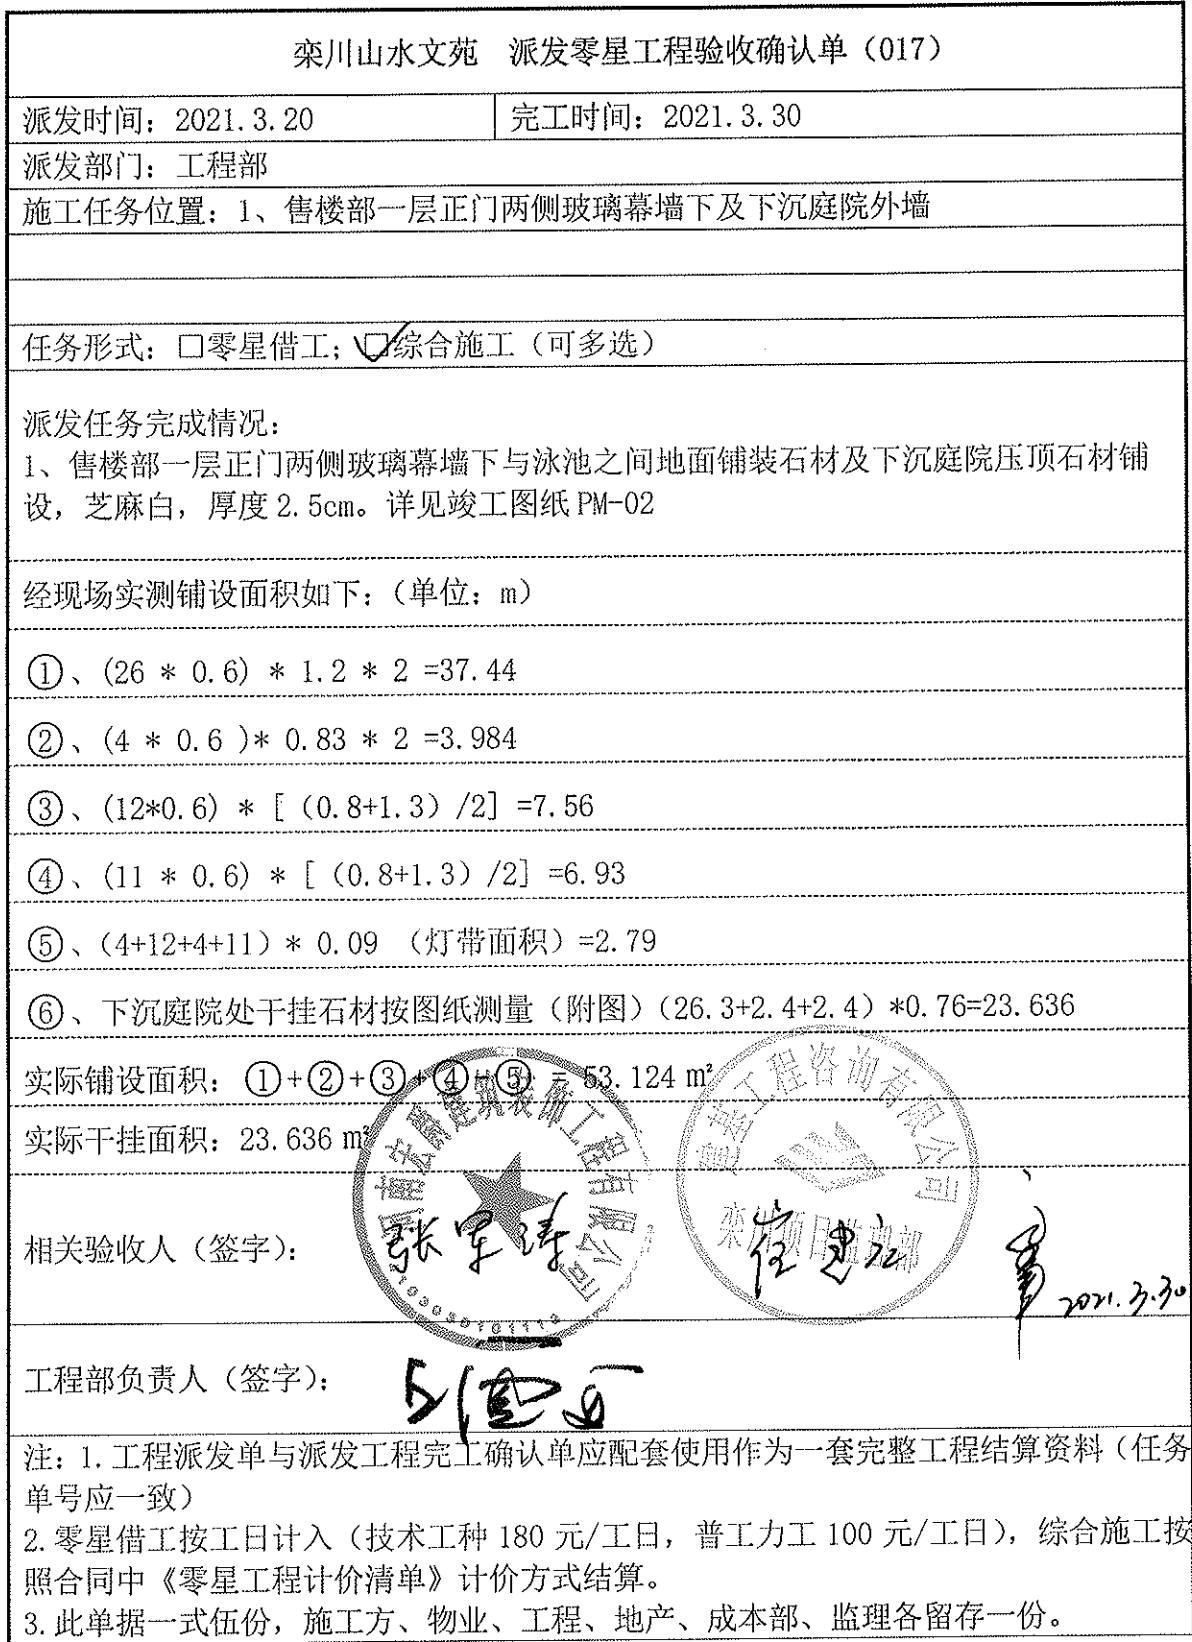 栾川山水文苑 派发零星工程验收确认单（017）
派发时间：2021.3.20 完工时间：2021.3.30
派发部门：工程部
施工任务位置：1、售楼部一层正门两侧玻璃幕墙下及下沉庭院外墙
任务形式：□零星借工；☑综合施工（可多选）
派发任务完成情况：
1、售楼部一层正门两侧玻璃幕墙下与泳池之间地面铺装石材及下沉庭院压顶石材铺
设，芝麻白，厚度2.5cm。详见竣工图纸PM-02
经现场实测铺设面积如下：（单位：m）
①、(26 * 0.6) * 1.2 * 2 =37.44
②、(4 * 0.6 )* 0.83 * 2 =3.984
③、(12*0.6) * [（0.8+1.3）/2] =7.56
④、(11 * 0.6) * [（0.8+1.3）/2] =6.93
⑤、（4+12+4+11）* 0.09 （灯带面积）=2.79
⑥、下沉庭院处干挂石材按图纸测量（附图）（26.3+2.4+2.4）*0.76=23.636
实际铺设面积：①+②+③+④+⑤ = 53.124 m²
实际干挂面积：23.636 m²
河南宏爵建筑装饰工程有限公司
4103030101113
工程咨询有限公司
栾川项目监理部
相关验收人（签字）： 张军涛 崔建 2021.3.30
工程部负责人（签字）：
注：1.工程派发单与派发工程完工确认单应配套使用作为一套完整工程结算资料（任务
单号应一致）
2.零星借工按工日计入（技术工种 180 元/工日，普工力工 100 元/工日），综合施工按
照合同中《零星工程计价清单》计价方式结算。
3.此单据一式伍份，施工方、物业、工程、地产、成本部、监理各留存一份。